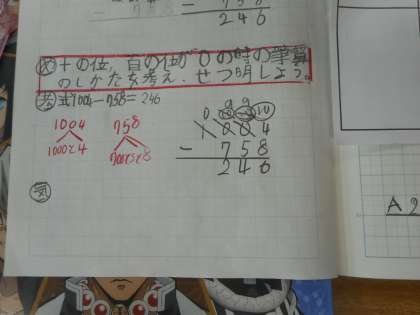 - 758
246
め 十の位、百の位が0の時の筆算
のしかたを考え、せつ明しよう。
考 式1004-758=246
1004 758
1000と4 700と58
0 9 9 10
1004
- 758
246
気
A 9